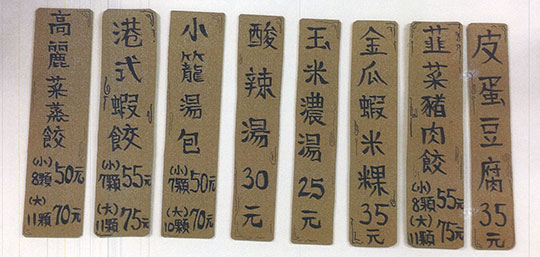 高麗菜蒸餃
(小)
8顆 50元
(大)
11顆 70元
港式蝦餃
(小)
7顆 55元
(大)
11顆 75元
小籠湯包
(小)
7顆 50元
(大)
10顆 70元
酸辣湯 30元
玉米濃湯 25元
金瓜蝦米粿 35元
韮菜豬肉餃
(小)
8顆 55元
(大)
11顆 75元
皮蛋豆腐 35元